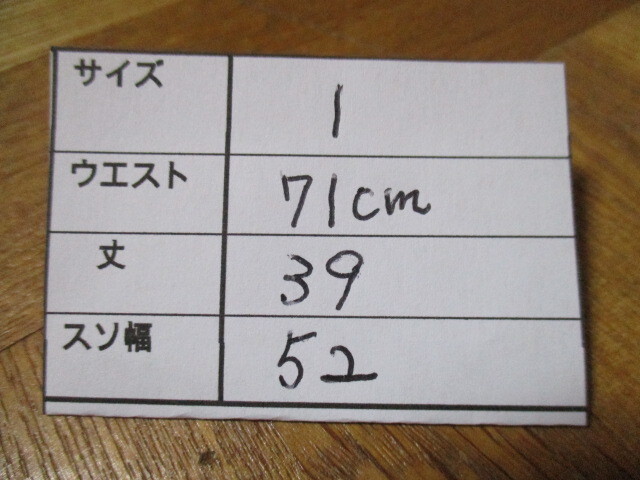 サイズ 1
ウエスト 71cm
丈 39
スソ幅 52